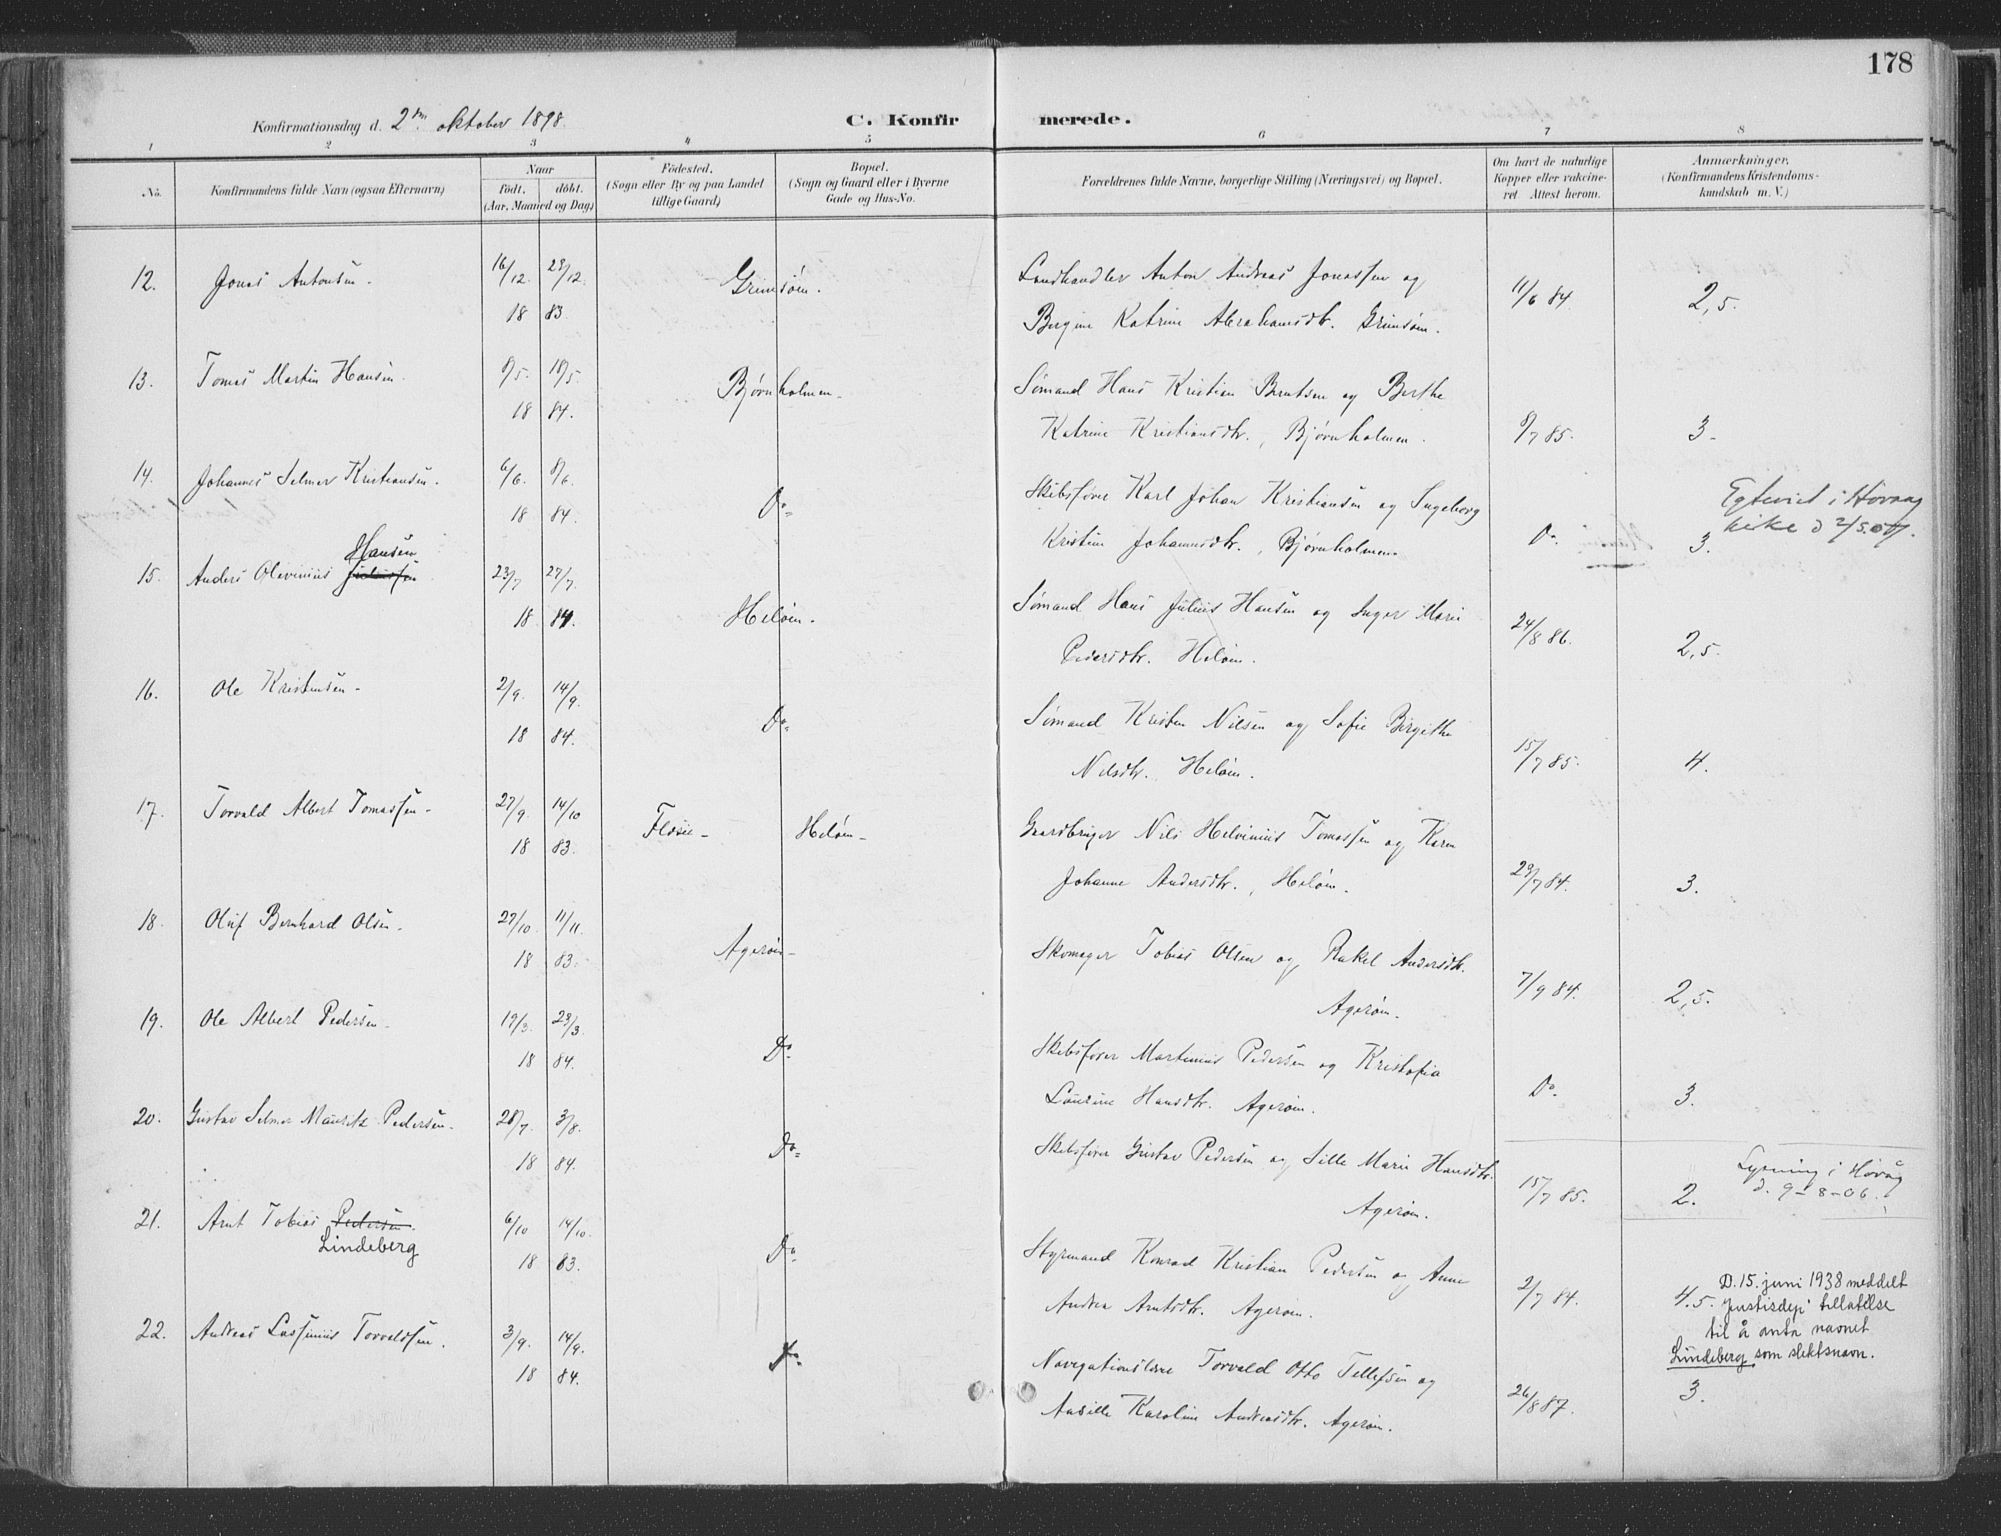 178
Konfirmationsdag d. 2den oktober 1898.
C. Konfirmerede.
1 2 3 4 5 6 7 8
No. Konfirmandens fulde Navn (ogsaa Efternavn) Naar födt. döbt. (Aar, Maaned og Dag) Födested. (Sogn eller By og paa Landet tillige Gaard) Bopæl. (Sogn og Gaard eller i Byerne Gade og Hus-No. Forældrenes fulde Navne, borgerlige Stilling (Næringsvei) og Bopæl. Om havt de naturlige Kopper eller vaccineret. Attest herom. Anmærkninger. (Konfirmandens Kristendomskundskab m. V.)
12. Jonas Antonsen. 16/12. 23/12. Grimsöen. Landhandler Anton Andreas Jonassen og 11/6 84. 2,5.
18 83 Bergine Katrine Abrahamsdtr. Grimsöen.
13. Tomas Martin Hansen. 8/5. 18/5. Bjørnholmen. Sømand Hans Kristian Berntsen og Berthe
18 84. Katrine Kristiansdtr., Bjørnholmen. 8/7 85. 3.
14. Johannes Selmer Kristiansen. 6/6. 8/6. Do Skibsfører Karl Johan Kristiansen og Ingeborg Egteviet i Høvaag
18 84. Kristine Johannesdtr., Bjørnholmen. Do 3. kirke d 2/5.07.
15. Anders Olevinius Hansen 23/7 27/7. Heløen. Sømand Hans Julius Hansen og Inger Marie
18 84. Pedersdtr. Heløen. 24/8 86. 2,5.
16. Ole Kristensen. 2/9. 14/9. Do Sømand Kristen Nilsen og Sofie Birgithe
18 84. Nilsdtr. Heløen. 15/7 85. 4.
17. Torvald Albert Tomassen. 27/9. 14/10 Heløen. Gaardbruger Nils Helvinius Tomassen og Karen
18 83. Johanne Andersdtr., Heløen. 23/7 84. 3.
18. Oluf Bernhard Olsen. 27/10. 11/11. Agerøen. Skomager Tobias Olsen og Rakel Andersdtr.
18 83. Agerøen. 7/9 84. 2,5.
19. Ole Albert Pedersen. 19/3. 23/3. Do Skibsfører Martinius Pedersen og Kristofia
18 84. Laurine Hansdtr. Agerøen. Do 3.
20. Gustav Selmer Mauritz Pedersen. 28/7. 3/8. Do Skibsfører Gustav Pedersen og Sille Marie Hansdtr. Lysning i Høvåg
18 84. Agerøen. 15/7 85. 2. d. 9-8-06.
21. Arnt Tobias Pedersen. 6/10 14/10. Do Styrmand Konrad Kristian Pedersen og Anne
Lindeberg 18 83. Andrea Arntsdtr. Agerøen. 2/7 84. 4.5. D. 15. juni 1938 meddelt
Justisdep. tillatelse
til å anta navnet
Lindeberg som slektsnavn.
22. Andreas Lassenius Torvaldsen. 3/9. 14/9. Do Navigationslærer Torvald Otto Tellefsen og
18 84. Karoline Andreasdtr. Agerøen. 26/8 87. 3.